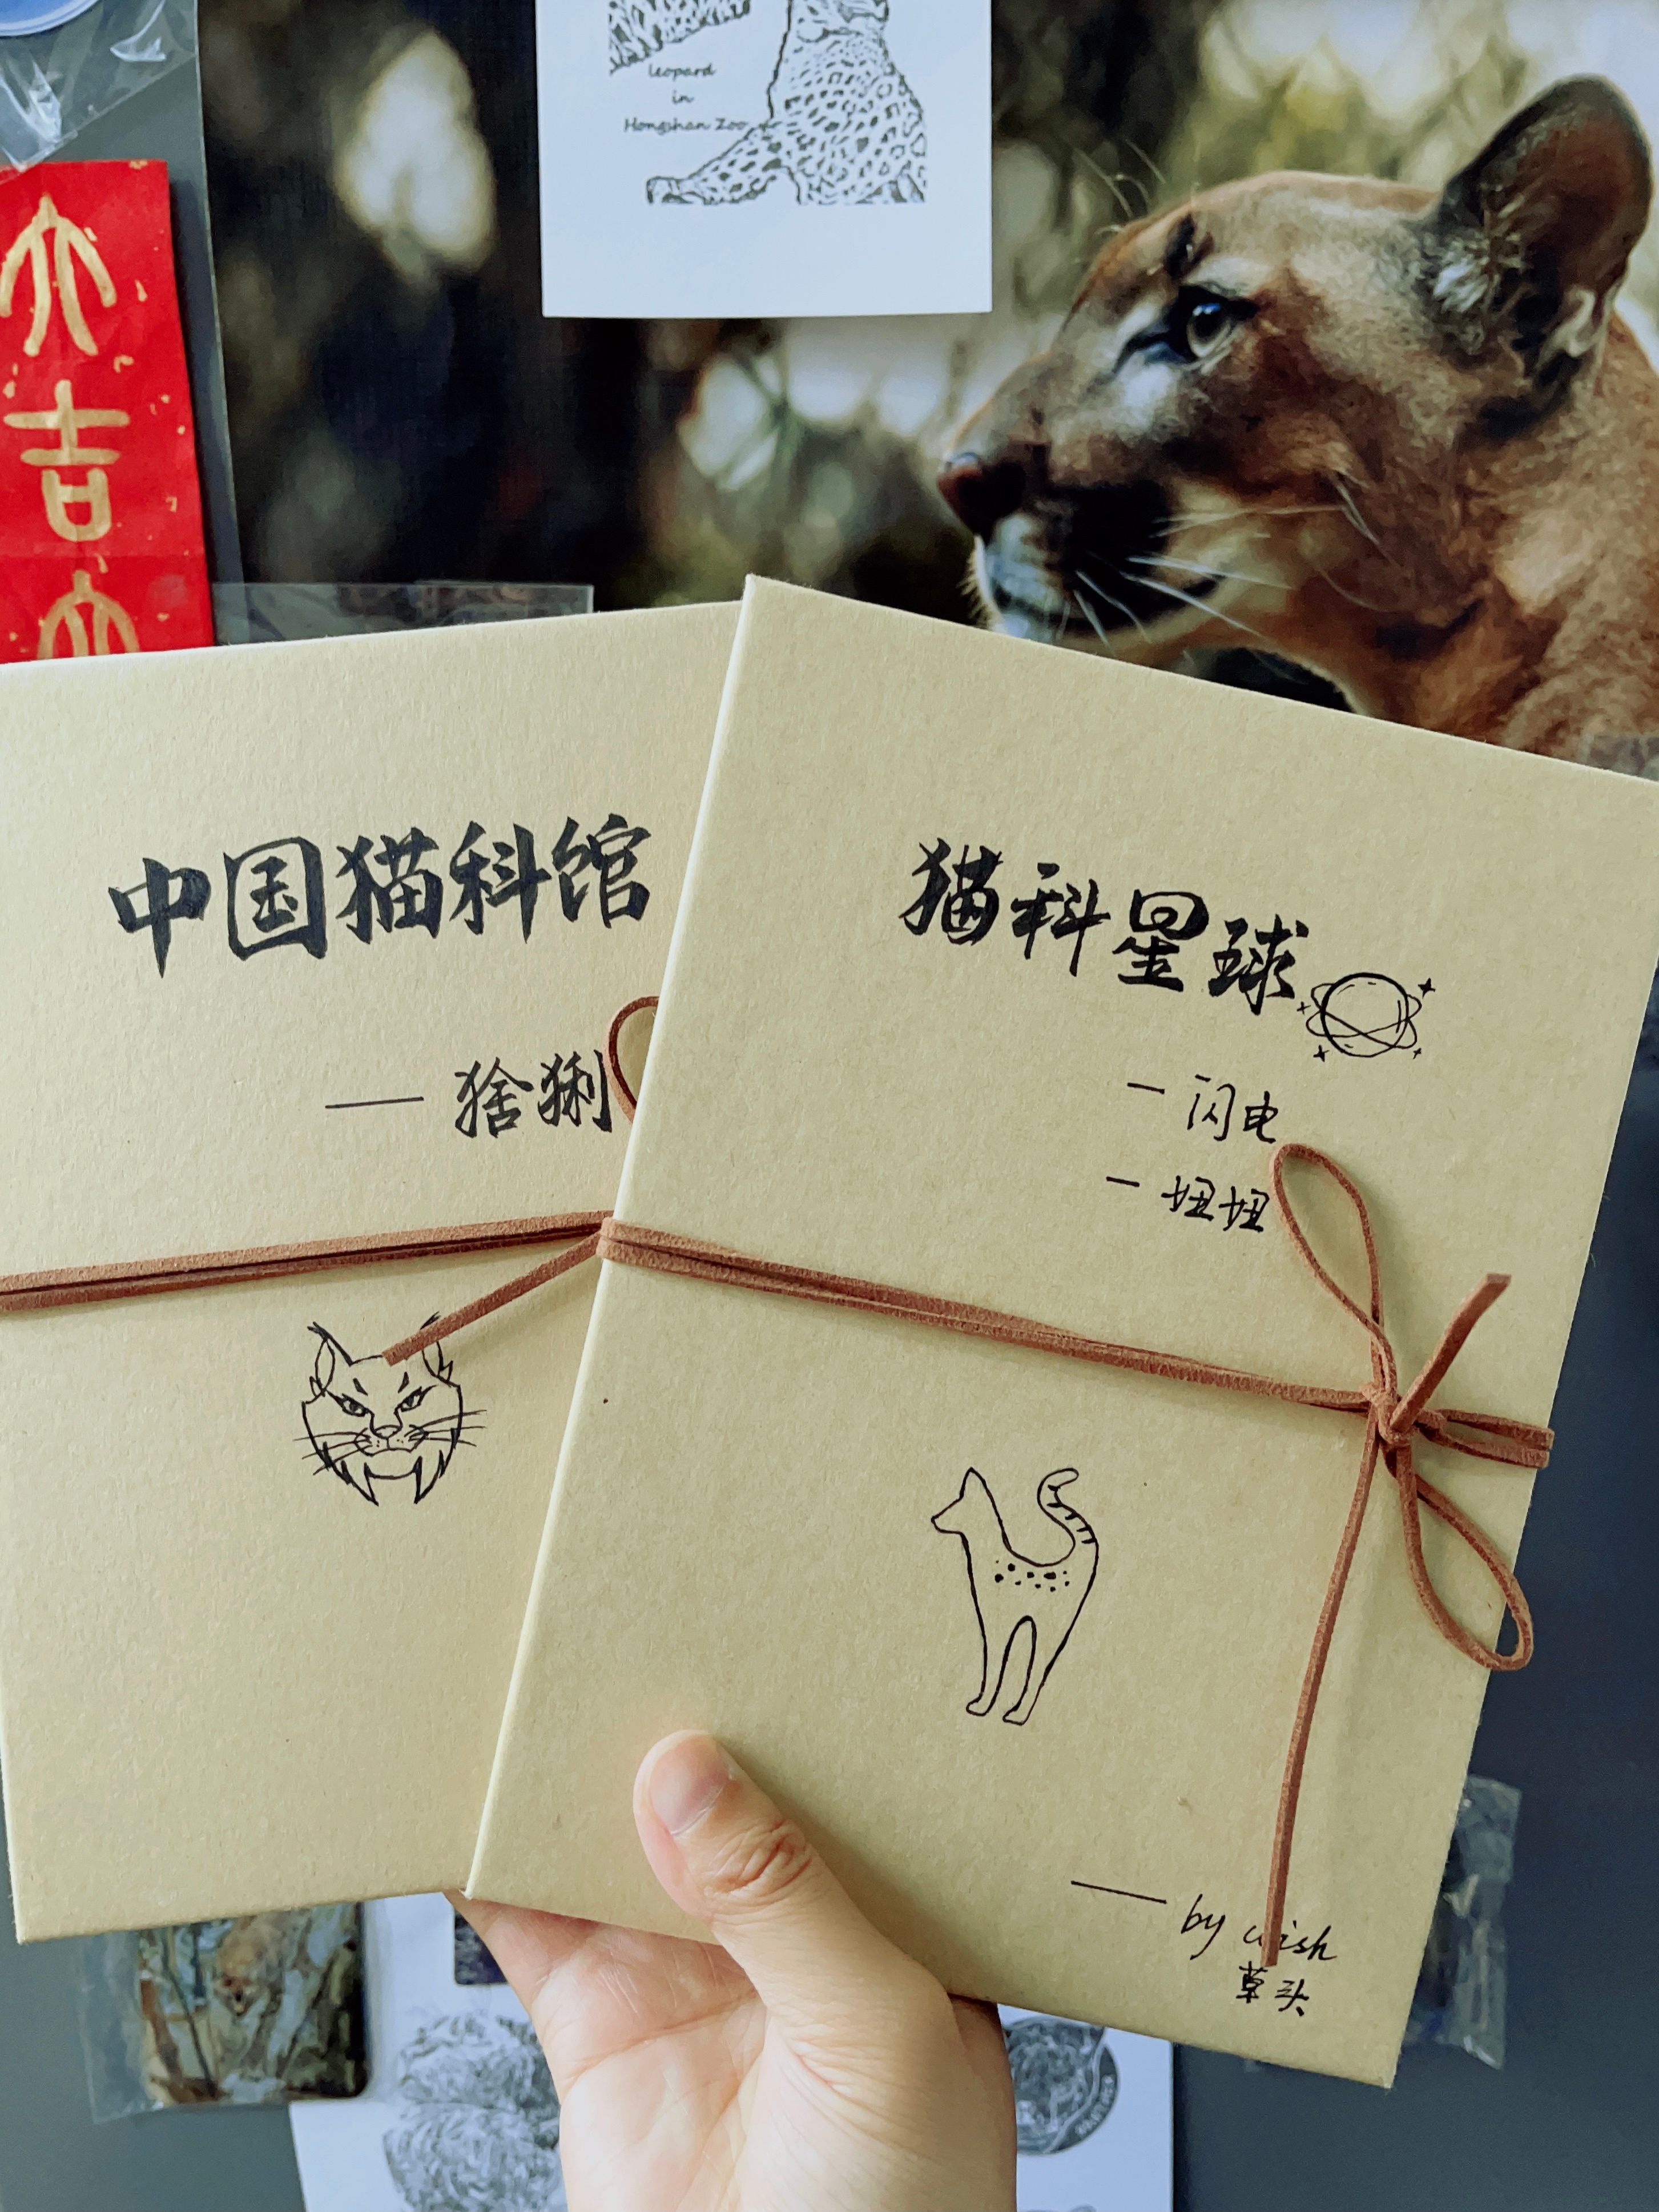 leopard
in
Hongshan Zoo
大
吉
大
中国猫科馆
— 猞猁
猫科星球
— 闪电
— 妞妞
— by wish
草头